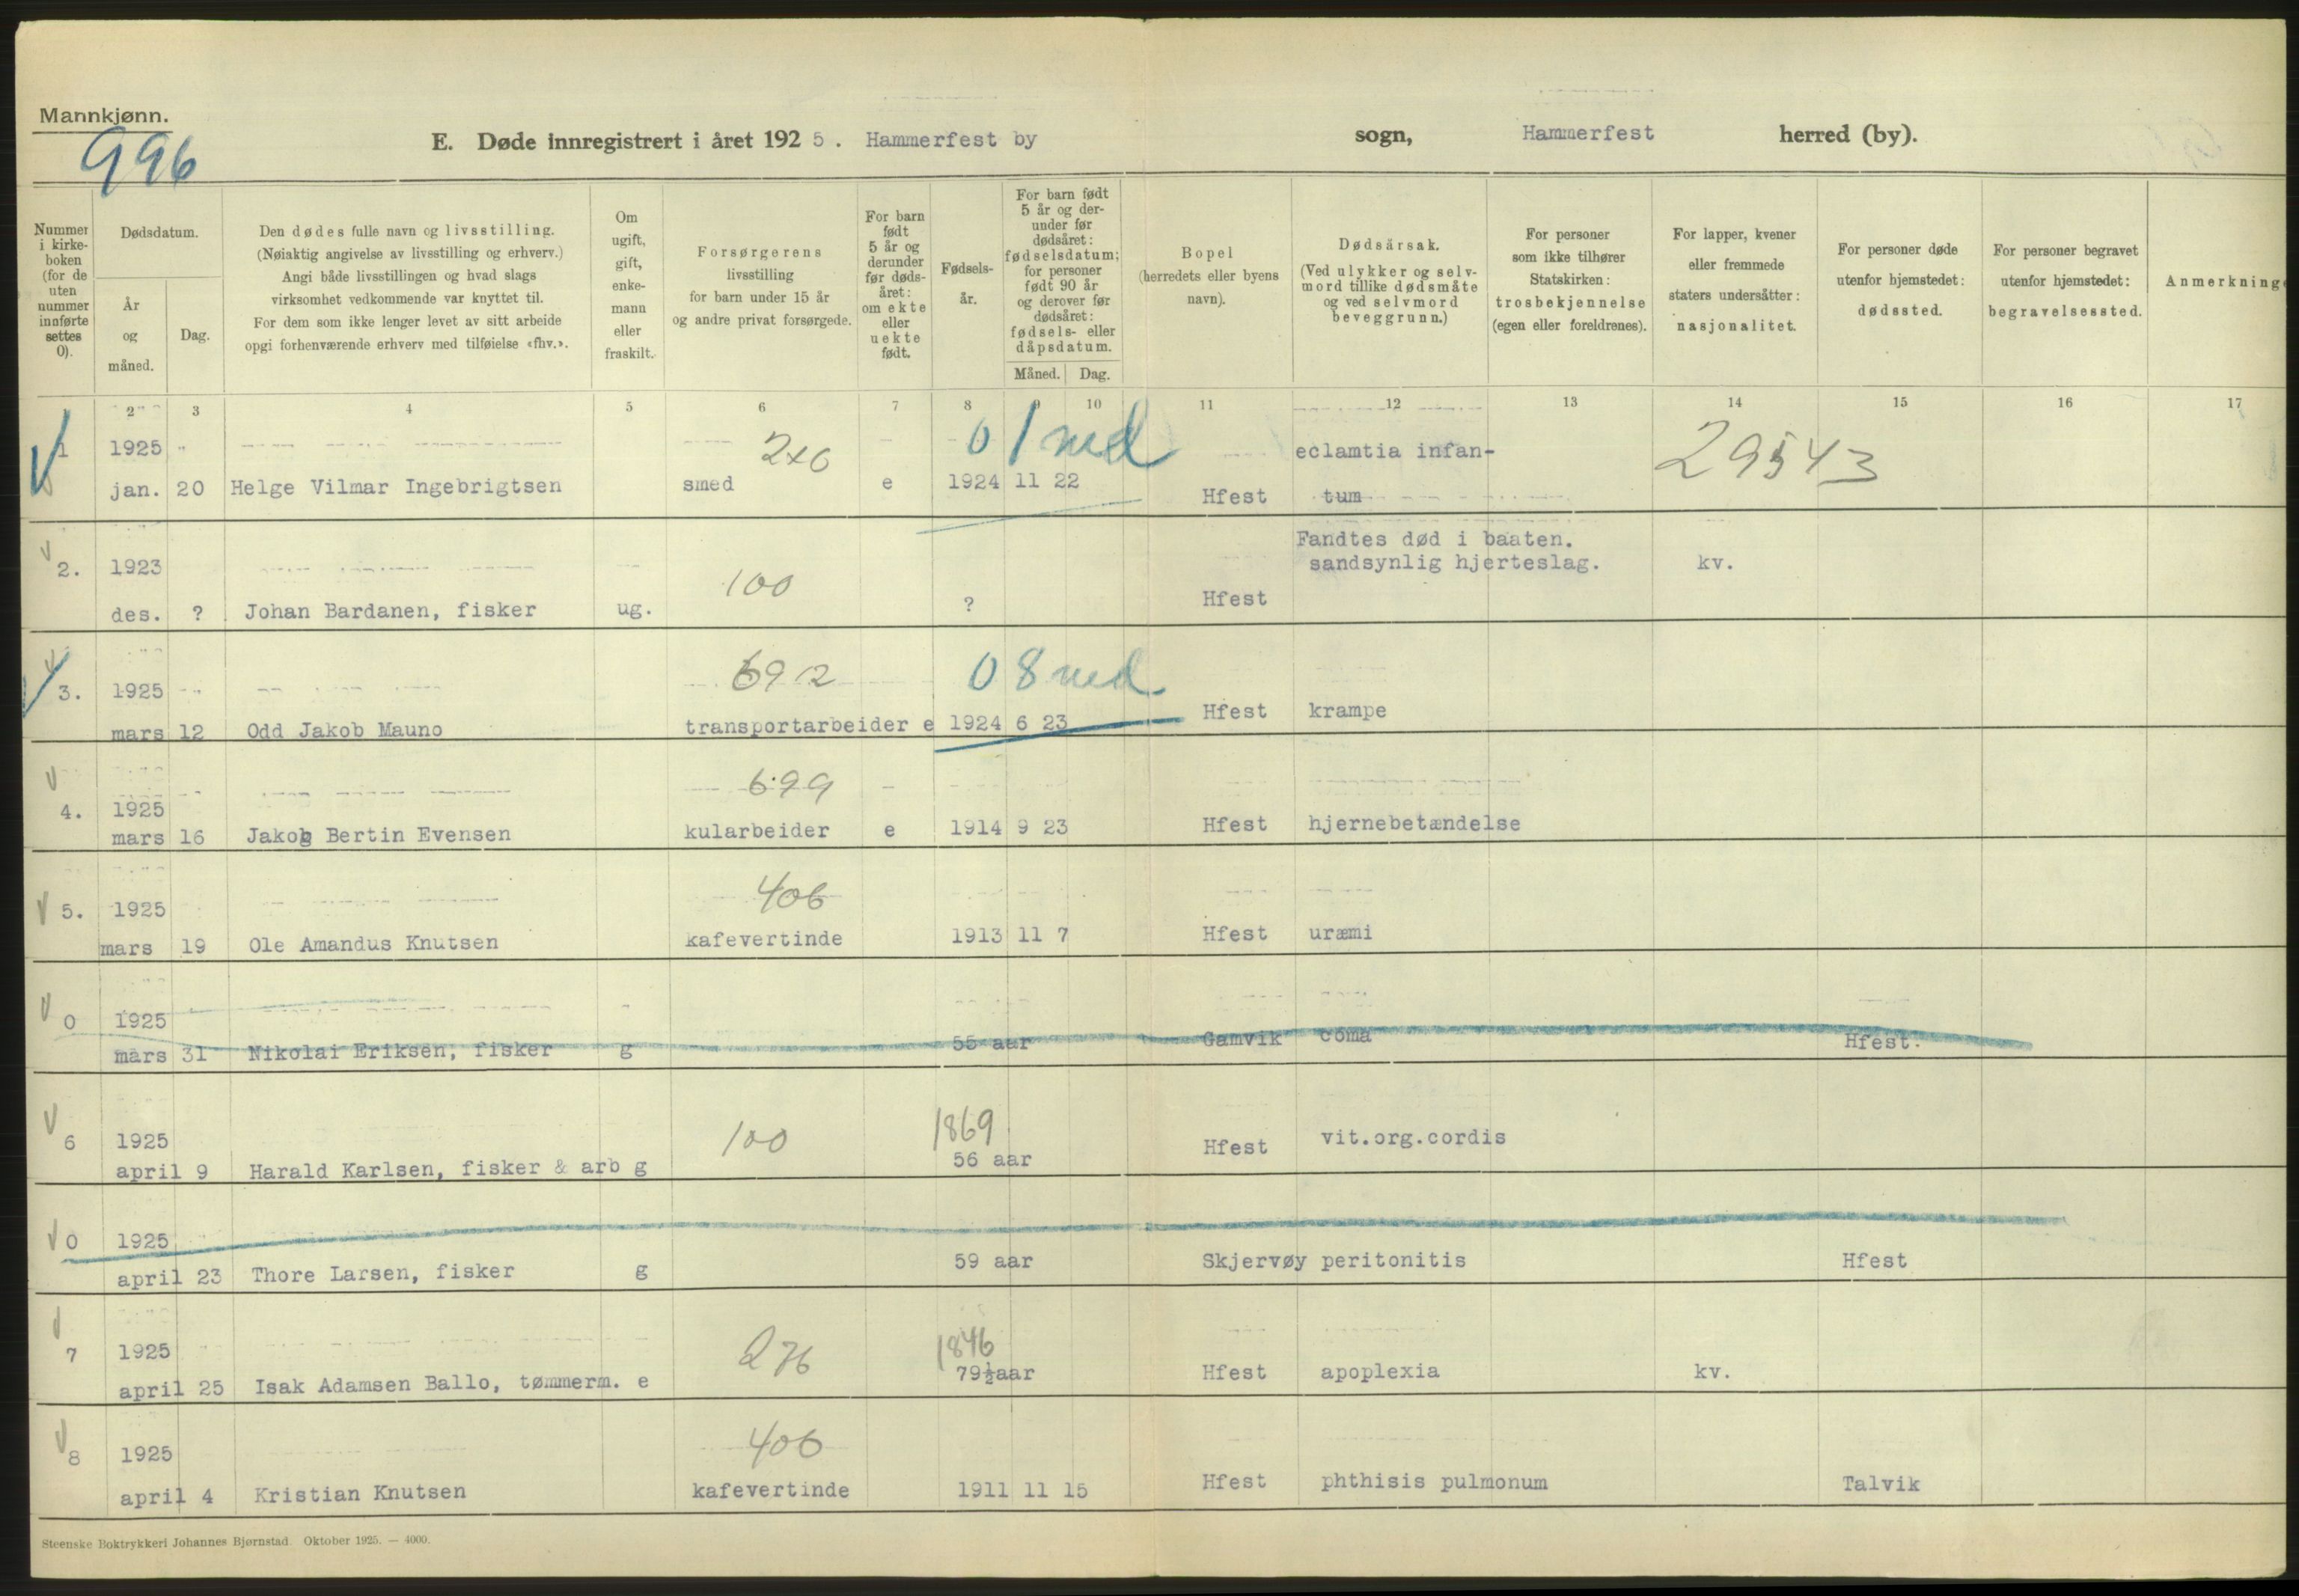 Mannkjønn.
996
E. Døde innregistrert i året 1925. Hammerfest by sogn, Hammerfest herred (by).
Nummer i kirke-boken (for de uten nummer innførte settes 0).
Dødsdatum.
År og måned.
Dag.
Den dødes fulle navn og livsstilling.
(Nøiaktig angivelse av livsstilling og erhverv.)
Angi både livsstillingen og hvad slags
virksomhet vedkommende var knyttet til.
For dem som ikke lenger levet av sitt arbeide
opgi forhenværende erhverv med tilføielse «fhv.».
Om ugift, gift, enke-mann eller fraskilt.
Forsørgerens
livsstilling
for barn under 15 år
og andre privat forsørgede.
For barn født 5 år og derunder før døds-året: om ekte eller uekte født.
Fødsels-år.
For barn født 5 år og der-under før dødsåret: fødselsdatum; for personer født 90 år og derover før dødsåret: fødsels- eller dåpsdatum.
Måned. Dag.
Bopel
(herredets eller byens
navn).
Dødsårsak.
(Ved ulykker og selv-
mord tillike dødsmåte
og ved selvmord
beveggrunn.)
For personer
som ikke tilhører
Statskirken:
trosbekjennelse
(egen eller foreldrenes).
For lapper, kvener
eller fremmede
staters undersåtter:
nasjonalitet.
For personer døde
utenfor hjemstedet:
dødssted.
For personer begravet
utenfor hjemstedet:
begravelsessted.
Anmerkning
2 3 4 5 6 7 8 9 10 11 12 13 14 15 16 17
1 1925 2x6 0 1 md eclamtia infan- 29543
jan. 20 Helge Vilmar Ingebrigtsen smed e 1924 11 22 Hfest tum
Fandtes død i baaten.
2. 1923 100 sandsynlig hjerteslag. kv.
des. ? Johan Bardanen, fisker ug. ? Hfest
3. 1925 692 0 8 md.
mars 12 Odd Jakob Mauno transportarbeider e 1924 6 23 Hfest krampe
4. 1925 699
mars 16 Jakob Bertin Evensen kularbeider e 1914 9 23 Hfest hjernebetændelse
5. 1925 406
mars 19 Ole Amandus Knutsen kafevertinde 1913 11 7 Hfest uræmi
0 1925
mars 31 Nikolai Eriksen, fisker g 55 aar Gamvik coma Hfest.
6 1925 100 1869
april 9 Harald Karlsen, fisker & arb g 56 aar Hfest vit.org.cordis
0 1925
april 23 Thore Larsen, fisker g 59 aar Skjervøy peritonitis Hfest
7 1925 276 1846
april 25 Isak Adamsen Ballo, tømmerm. e 79½aar Hfest apoplexia kv.
8 1925 406
april 4 Kristian Knutsen kafevertinde 1911 11 15 Hfest phthisis pulmonum Talvik
Steenske Boktrykkeri Johannes Bjørnstad. Oktober 1925. — 4000.